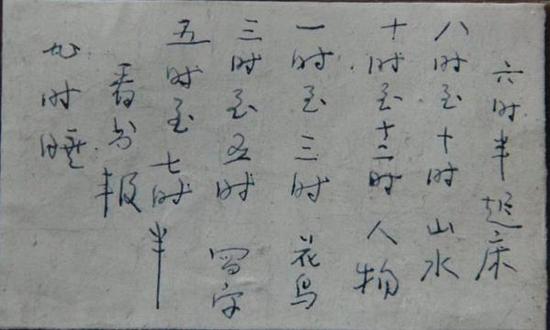 六时半起床
八时至十时 山水
十时至十二时 人物
一时至三时 花鸟
三时至五时 写字
五时至七时半
看书报
九时睡